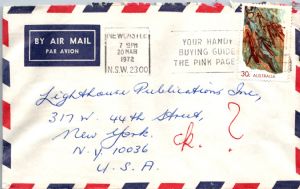 BY AIR MAIL
PAR AVION
NEWCASTLE
7-PM
20 MAR
1972
N.S.W. 2300
YOUR HANDY
BUYING GUIDE
THE PINK PAGES
30c AUSTRALIA
Lighthouse Publications Inc,
317 W. 44th Street,
New York.
N.Y. 10036
U.S.A.
ck. ?